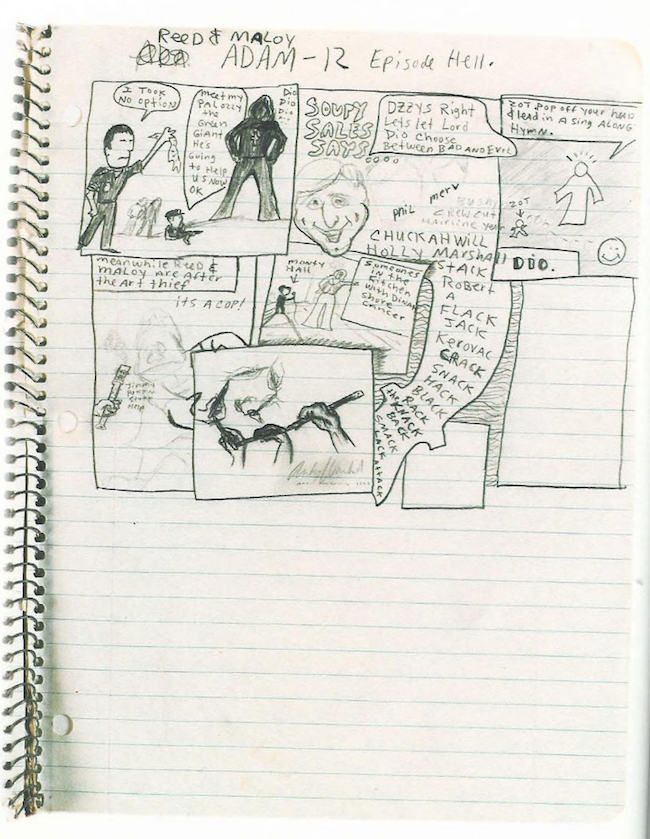 REED & MALOY
ADAM-12 Episode Hell.
I TOOK
NO OPTION
meet my
PAL OZZY
the
Green
GIANT
He's
Going
to Help
US NOW
OK
Dio
Dio
Dio
SOUPY
SALES
SAYS
OZZYS Right
Lets let Lord
Dio choose
Between BAD AND EVIL
ZOT. POP OFF your HEAD
& lead in A Sing ALONG
HYMN.
ZOT
DIO.
phil
merv
CREW CUT
CHUCKAHWILL
HOLLY Marshall
STACK
RoBerT
A
FLACK
JACK
Kerovac
CRACK
SNACK
HACK
BLACK
RACK
KNACK
BACK
SMACK
ATTACK
meanwhile REED &
MALOY ARE AFTER
the ART thief
its A COP!
MONTY
HALL
Someones
in the
Kitchen
with DINAH
Shore
cancer